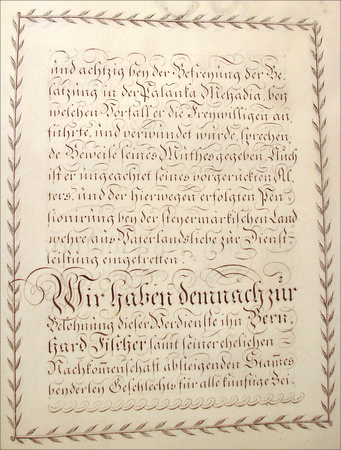 und achtzig bey der Befreyung der Be-
satzung in der Palanka Mehadia, bey
welchem Vorfall er die Freywilligen an
führte, und verwundet wurde, sprechen
de Beweise seines Muthes gegeben. Auch
ist er ungeachtet seines vorgerückten Al-
ters, und der hierwegen erfolgten Pen-
sionirung bey der steyermärkischen Land
wehre aus Vaterlandsliebe zur Dienst-
leistung eingetretten.
Wir haben demnach zur
Belohnung dieser Verdienste ihn Bern
hard Fischer samt seiner ehelichen
Nachkommenschaft absteigenden Stammes
beyderley Geschlechts für alle künftige Zei-